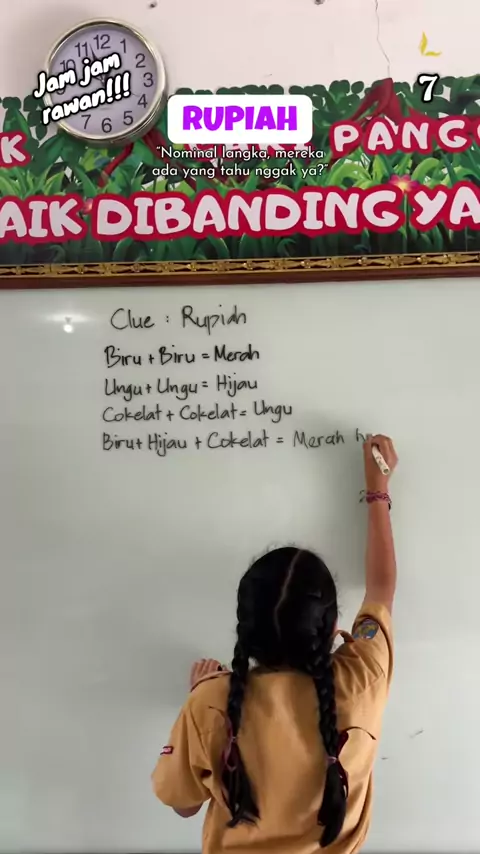 11 12 1
10 2
3
4
8 7 6 5
Jam jam
rawan!!!
7
RUPIAH
K PANG
"Nominal langka, mereka
ada yang tahu nggak ya?"
AIK DIBANDING YA
Clue : Rupiah
Biru + Biru = Merah
Ungu + Ungu = Hijau
Cokelat + Cokelat = Ungu
Biru + Hijau + Cokelat = Merah